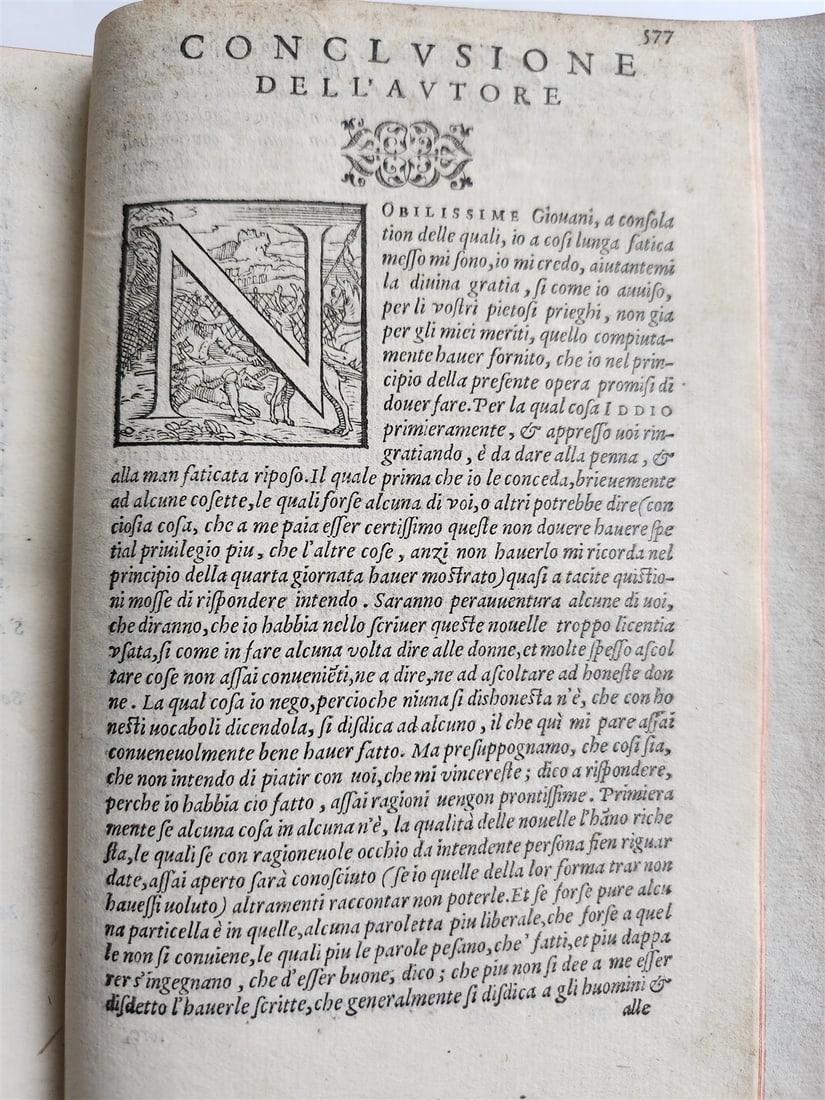 577
CONCLVSIONE
DELL'AVTORE
NOBILISSIME Giouani, a conſola
tion delle quali, io a coſi lunga fatica
meſſo mi ſono, io mi credo, aiutantemi
la diuina gratia, ſi come io auuiſo,
per li voſtri pietoſi prieghi, non gia
per gli miei meriti, quello compiuta-
mente hauer fornito, che io nel prin-
cipio della preſente opera promiſi di
douer fare. Per la qual coſa IDDIO
primieramente, & appreſſo uoi rin-
gratiando, è da dare alla penna, &
alla man faticata ripoſo. Il quale prima che io le conceda, brieuemente
ad alcune coſette, le quali forſe alcuna di voi, o altri potrebbe dire (con
cioſia coſa, che a me paia eſſer certiſſimo queſte non douere hauere ſpe
tial priuilegio piu, che l'altre coſe, anzi non hauerlo mi ricorda nel
principio della quarta giornata hauer moſtrato) quaſi a tacite quiſtio-
ni moſſe di riſpondere intendo. Saranno perauuentura alcune di uoi,
che diranno, che io habbia nello ſcriuer queſte nouelle troppo licentia
vſata, ſi come in fare alcuna volta dire alle donne, et molte ſpeſſo aſcol
tare coſe non aſſai conueniẽti, ne a dire, ne ad aſcoltare ad honeſte don
ne. La qual coſa io nego, percioche niuna ſi dishoneſta n'è, che con ho
neſti uocaboli dicendola, ſi diſdica ad alcuno, il che quì mi pare aſſai
conueneuolmente bene hauer fatto. Ma preſuppognamo, che coſi ſia,
che non intendo di piatir con uoi, che mi vincereſte; dico a riſpondere,
perche io habbia cio fatto, aſſai ragioni uengon prontiſſime. Primiera
mente ſe alcuna coſa in alcuna n'è, la qualità delle nouelle l'hãno riche
ſta, le quali ſe con ragioneuole occhio da intendente perſona fien riguar
date, aſſai aperto ſarà conoſciuto (ſe io quelle della lor forma trar non
haueſſi uoluto) altramenti raccontar non poterle. Et ſe forſe pure alcu
na particella è in quelle, alcuna paroletta piu liberale, che forſe a quel
le non ſi conuiene, le quali piu le parole peſano, che' fatti, et piu dappa
rer s'ingegnano, che d'eſſer buone; dico; che piu non ſi dee a me eſſer
diſdetto l'hauerle ſcritte, che generalmente ſi diſdica a gli huomini &
alle